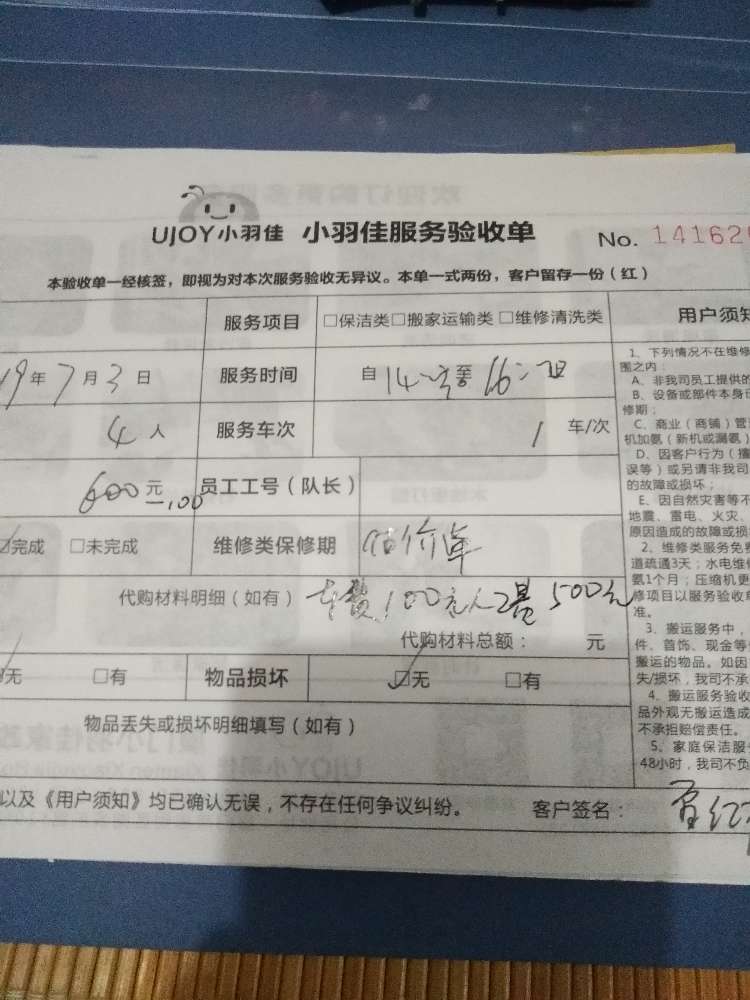 UJOY小羽佳 小羽佳服务验收单 No. 14162
本验收单一经核签，即视为对本次服务验收无异议。本单一式两份，客户留存一份（红）
服务项目 □保洁类□搬家运输类□维修清洗类 用户须知
19年7月3日 服务时间 自14:至16:
4人 服务车次 1 车/次
600元 100 员工工号（队长）
☑完成 □未完成 维修类保修期 估价单
代购材料明细（如有） 车费100元人工 500元
代购材料总额： 元
无 □有 物品损坏 ☑无 □有
物品丢失或损坏明细填写（如有）
以及《用户须知》均已确认无误，不存在任何争议纠纷。 客户签名：
1、下列情况不在维修
围之内：
A、非我司员工提供的
B、设备或部件本身
修期；
C、商业（商铺）管
机加氨（新机或漏氨）
D、因客户行为（擅
误等）或另请非我司
的故障或损坏；
E、因自然灾害等不
地震、雷电、火灾、
原因造成的故障或损
2、维修类服务免费
道疏通3天；水电维修
氨1个月；压缩机更
修项目以服务验收单
准。
3、搬运服务中，
件、首饰、现金等
搬运的物品。如因
失/损坏，我司不承
4、搬运服务验收
品外观无搬运造成
不承担赔偿责任。
5、家庭保洁服
48小时，我司不负